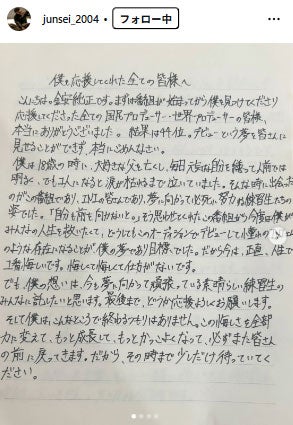 junsei_2004 • フォロー中
僕を応援してくれた全ての皆様へ
こんにちは。金安純正です。まずは番組が始まってから僕を見つけてくださり
応援してくださった全ての国民プロデューサー・世界プロデューサーの皆様、
本当にありがとうございました。結果は44位。デビューという夢を皆さんに
見せることができず、本当にごめんなさい。
僕は18歳の時に、大好きな父を亡くし、毎日元気な自分を繕って人前では
明るく、でも1人になると涙が枯れるまで泣いていました。そんな時に出会った
のがこの番組であり、INIの皆さんであり、夢に向かって必死に努力する練習生たちの
姿でした。「自分も前を向かないと」そう思わせてくれたこの番組から今度は僕が
みんなの人生を救いたくて、どうしてもこのオーディションでデビューして憧れの
のような存在になることが、僕の夢であり目標でした。だから今は、正直、人生で
1番悔しいです。悔しくて悔しくて仕方がないです。
でも、僕の想いは、今も夢に向かって頑張っている素晴らしい練習生の
みんなに託したいと思います。最後まで、どうか応援よろしくお願いします。
そして僕は、こんなところで終わるつもりはありません。この悔しさを全部
力に変えて、もっと成長して、もっとかっこよくなって、必ずまた皆さん
の前に戻ってきます。だから、その時まで少しだけ待っていてく
ださい。